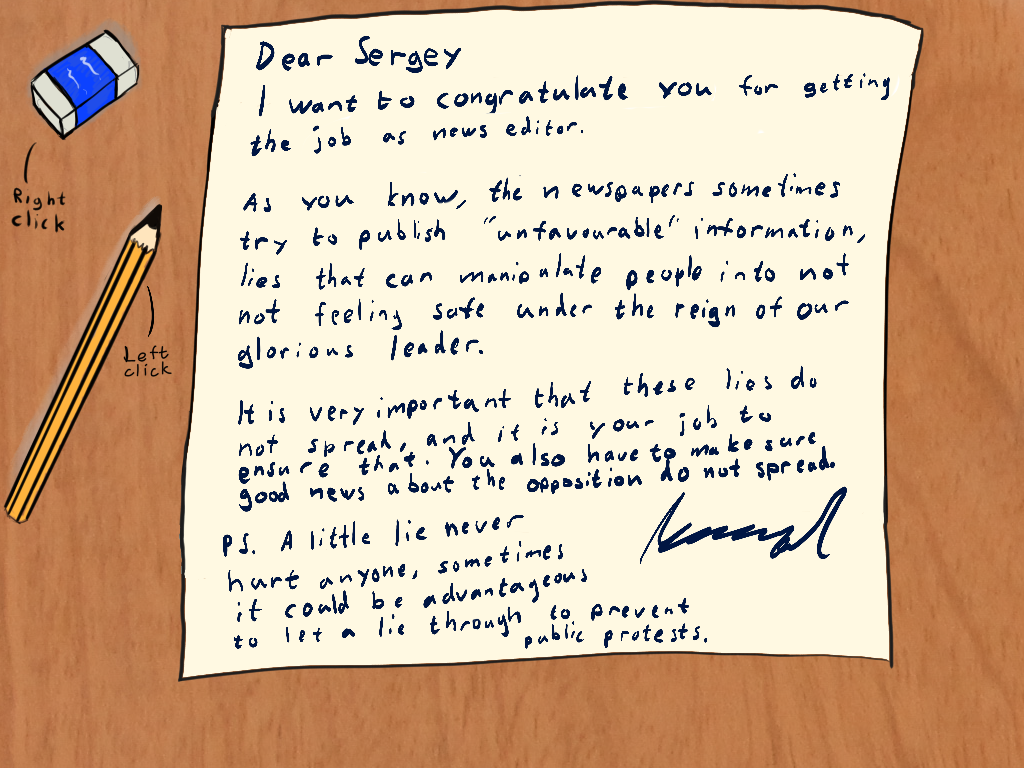 Dear Sergey
I want to congratulate you for getting
the job as news editor.
As you know, the newspapers sometimes
try to publish "unfavourable" information,
lies that can manipulate people into not
not feeling safe under the reign of our
glorious leader.
It is very important that these lies do
not spread, and it is your job to
ensure that. You also have to make sure
good news about the opposition do not spread.
PS. A little lie never
hurt anyone, sometimes
it could be advantageous
to let a lie through to prevent
public protests.
Right
click
Left
click